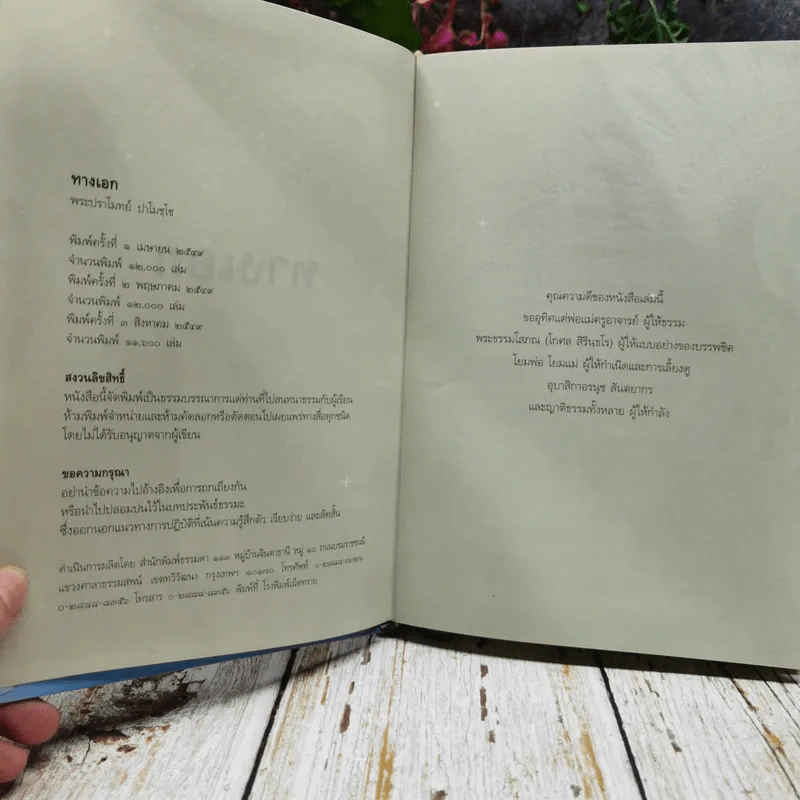 ทางเอก
พระปราโมทย์ ปาโมชฺโช
พิมพ์ครั้งที่ ๑ เมษายน ๒๕๔๙
จำนวนพิมพ์ ๑๒,๐๐๐ เล่ม
พิมพ์ครั้งที่ ๒ พฤษภาคม ๒๕๔๙
จำนวนพิมพ์ ๑๒,๐๐๐ เล่ม
พิมพ์ครั้งที่ ๓ สิงหาคม ๒๕๔๙
จำนวนพิมพ์ ๑๑,๖๐๐ เล่ม
สงวนลิขสิทธิ์
หนังสือนี้จัดพิมพ์เป็นธรรมบรรณาการแด่ท่านที่ไปสนทนาธรรมกับผู้เขียน
ห้ามพิมพ์จำหน่ายและห้ามคัดลอกหรือตัดตอนไปเผยแพร่ทางสื่อทุกชนิด
โดยไม่ได้รับอนุญาตจากผู้เขียน
ขอความกรุณา
อย่านำข้อความไปอ้างอิงเพื่อการถกเถียงกัน
หรือนำไปปลอมปนไว้ในบทประพันธ์ธรรมะ
ซึ่งออกนอกแนวทางการปฏิบัติที่เน้นความรู้สึกตัว เรียบง่าย และลัดสั้น
ดำเนินการผลิตโดย สำนักพิมพ์ธรรมดา ๑๑๓ หมู่บ้านจินดาธานี หมู่ ๑๐ ถนนบรมราชชนนี
แขวงศาลาธรรมสพน์ เขตทวีวัฒนา กรุงเทพฯ ๑๐๑๗๐ โทรศัพท์ ๐-๒๘๘๘-๗๐๒๖
๐-๒๘๘๘-๘๓๕๖ โทรสาร ๐-๒๘๘๘-๘๓๕๖ พิมพ์ที่ โรงพิมพ์เม็ดทราย
คุณความดีของหนังสือเล่มนี้
ขออุทิศแด่พ่อแม่ครูอาจารย์ ผู้ให้ธรรม
พระธรรมโสภณ (โกศล สิรินฺธโร) ผู้ให้แบบอย่างของบรรพชิต
โยมพ่อ โยมแม่ ผู้ให้กำเนิดและการเลี้ยงดู
อุบาสิกาอรนุช สันตยากร
และญาติธรรมทั้งหลาย ผู้ให้กำลัง